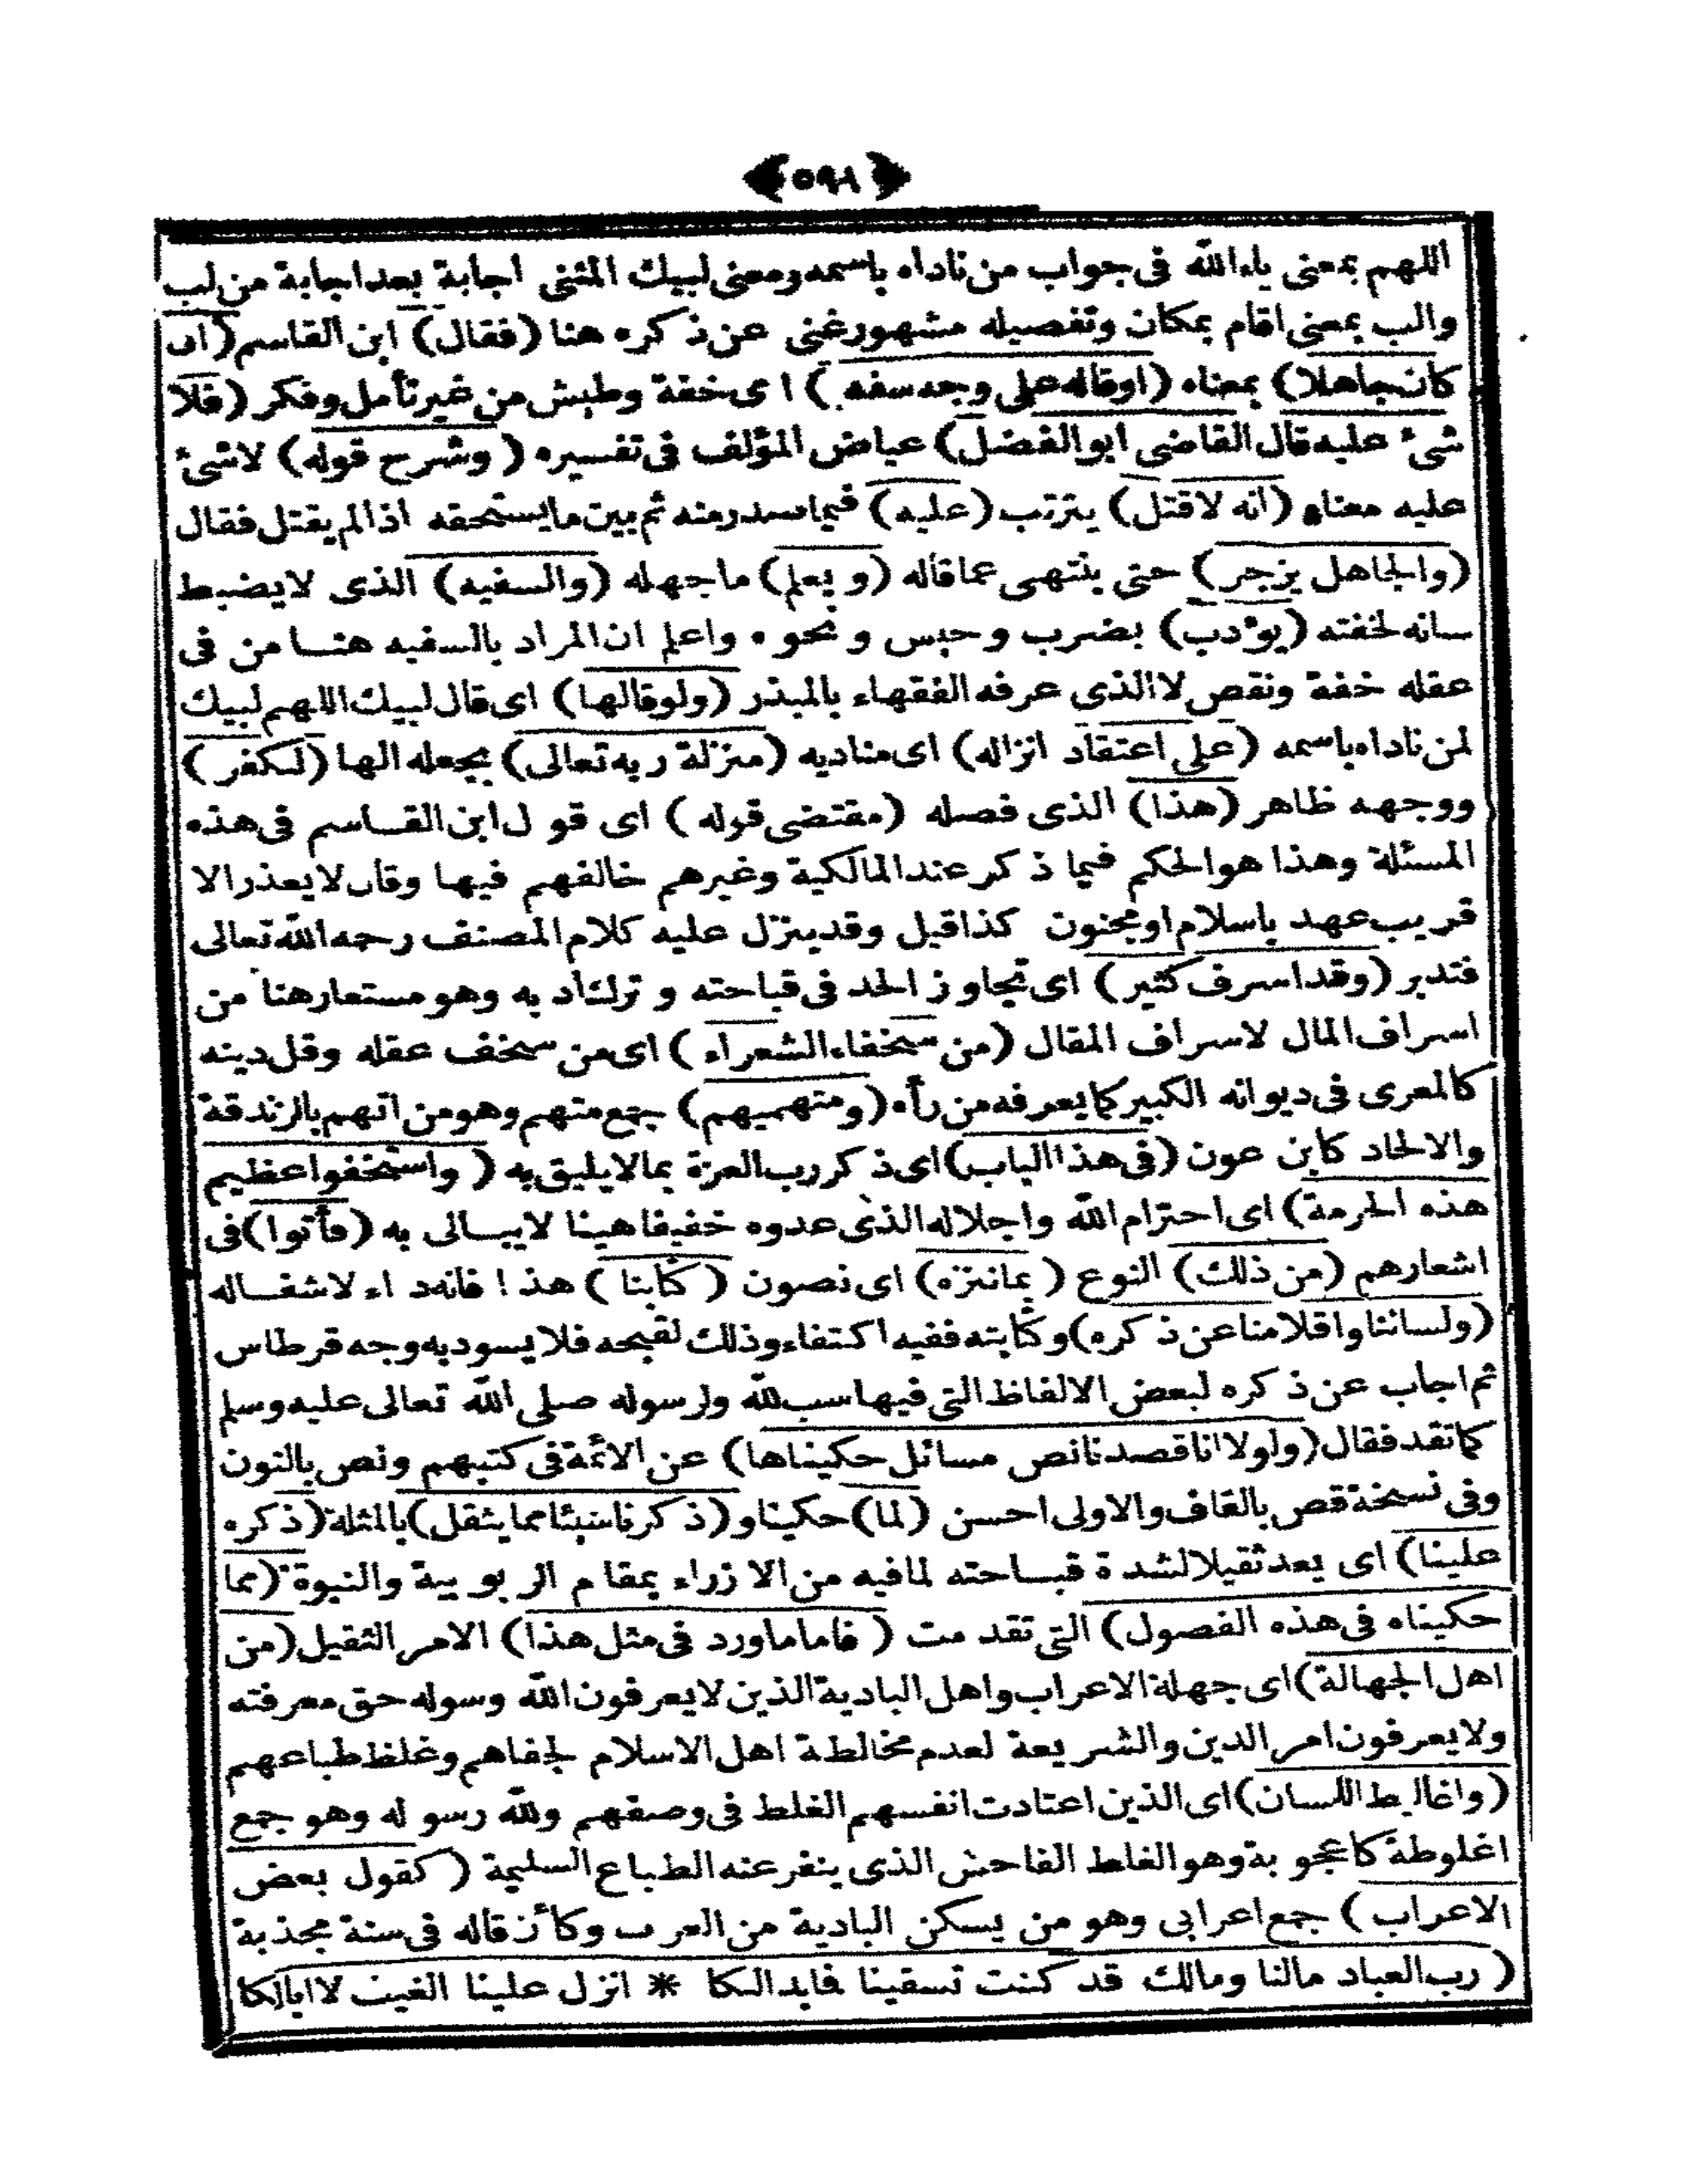 ﴿٥٩٨﴾
اللهم بمعنى ياءالله فى جواب من ناداه باسمه ومعنى لبيك المثنى اجابة بعد اجابة من لب
والب بمعنى اقام بمكان وتفصيله مشهور غنى عن ذكره هنا (فقال) ابن القاسم (ان
كان جاهلا) بمعناه (اوقاله على وجه سفه) اى خفة وطيش من غير تأمل وفكر (فلا
شىء عليه قال القاضى ابوالفضل) عياض المؤلف فى تفسيره (وشرح قوله) لاشىء
عليه معناه (انه لاقتل) يترتب (عليه) فيما صدر منه ثم بين ما يستحقه اذا لم يقتل فقال
(والجاهل يزجر) حتى ينتهى عما قاله (و يعلم) ما جهله (والسفيه) الذى لا يضبط
سانه لخفته (يؤدب) بضرب وحبس و نحوه واعلم ان المراد بالسفيه هنا من فى
عقله خفة ونقص لا الذى عرفه الفقهاء بالمبذر (ولوقالها) اى قال لبيك اللهم لبيك
لمن ناداه باسمه (على اعتقاد انزاله) اى مناديه (منزلة ربه تعالى) بجعله الها (لكفر)
ووجهه ظاهر (هذا) الذى فصله (مقتضى قوله) اى قول ابن القاسم فى هذه
المسئلة وهذا هو الحكم فيما ذكر عند المالكية وغيرهم خالفهم فيها وقال لا يعذر الا
قريب عهد باسلام او مجنون كذا قيل وقد ينزل عليه كلام المصنف رحمه الله تعالى
فتدبر (وقد اسرف كثير) اى تجاوز الحد فى قباحته و ترك ادبه وهو مستعار هنا من
اسراف المال لاسراف المقال (من سخفاء الشعراء) اى من سخف عقله وقل دينه
كالمعرى فى ديوانه الكبير كما يعرفه من رأه (ومتهميهم) جمع متهم وهو من اتهم بالزندقة
والالحاد كابن عون (فى هذا الباب) اى ذكر رب العزة بما لا يليق به (واستخفوا عظيم
هذه الحرمة) اى احترام الله واجلاله الذى عدوه خفيفا هينا لا يبالى به (فأتوا) فى
اشعارهم (من ذلك) النوع (بما ننزه) اى نصون (كتابنا) هذا فانه داء لا شفاله
(ولساننا واقلامنا عن ذكره) وكتابته ففيه اكتفاء وذلك لقبحه فلا يسود به وجه قرطاس
ثم اجاب عن ذكره لبعض الالفاظ التى فيها سب لله ولرسوله صلى الله تعالى عليه وسلم
كما تقد فقال (ولولا انا قصدنا نص مسائل حكيناها) عن الائمة فى كتبهم ونص بالنون
وفى نسخة قص بالقاف والاولى احسن (لما) حكينا و (ذكرنا شيئا مما يثقل) بالمثلة (ذكره
علينا) اى يعد ثقيلا لشدة قباحته لما فيه من الازراء بمقام الربوبية والنبوة (مما
حكيناه فى هذه الفصول) التى تقدمت (فاما ما ورد فى مثل هذا) الامر الثقيل (من
اهل الجهالة) اى جهلة الاعراب واهل البادية الذين لا يعرفون الله وسوله حق معرفته
ولا يعرفون امر الدين والشريعة لعدم مخالطة اهل الاسلام لجفاهم وغلظ طباعهم
(واغاليط اللسان) اى الذين اعتادت انفسهم الغلط فى وصفهم ولله رسوله وهو جمع
اغلوطة كاعجوبة وهو الغلط الفاحش الذى ينفر عنه الطباع السليمة (كقول بعض
الاعراب) جمع اعرابى وهو من يسكن البادية من العرب وكأن قاله فى سنة مجدبة
(رب العباد مالنا ومالك قد كنت تسقينا فابدالكا * انزل علينا الغيث لا ابالكا